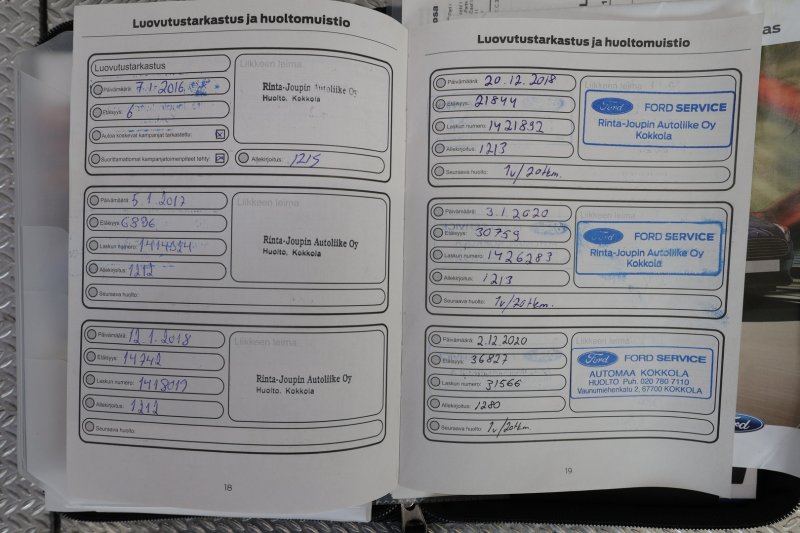 Luovutustarkastus ja huoltomuistio
Luovutustarkastus
Päivämäärä: 7.1-2016
Etäisyys: 6
Autoa koskevat kampanjat tarkastettu: x
Suorittamattomat kampanjatoimenpiteet tehty:
Liikkeen leima
Rinta-Joupin Autoliike Oy
Huolto, Kokkola
Allekirjoitus: 1215
Päivämäärä: 5.1.2017
Etäisyys: 6896
Laskun numero: 1414824
Allekirjoitus: 1212
Seuraava huolto:
Liikkeen leima
Rinta-Joupin Autoliike Oy
Huolto, Kokkola
Päivämäärä: 12.1.2018
Etäisyys: 14242
Laskun numero: 1418019
Allekirjoitus: 1212
Seuraava huolto:
Liikkeen leima
Rinta-Joupin Autoliike Oy
Huolto, Kokkola
18
Luovutustarkastus ja huoltomuistio
Päivämäärä: 20.12.2018
Etäisyys: 21844
Laskun numero: 1421892
Allekirjoitus: 1213
Seuraava huolto: 1v/20tkm.
Liikkeen leima
Ford FORD SERVICE
Rinta-Joupin Autoliike Oy
Kokkola
Päivämäärä: 3.1.2020
Etäisyys: 30759
Laskun numero: 1426283
Allekirjoitus: 1213
Seuraava huolto: 1v/20tkm.
Liikkeen leima
Ford FORD SERVICE
Rinta-Joupin Autoliike Oy
Kokkola
Päivämäärä: 2.12.2020
Etäisyys: 36827
Laskun numero: 31566
Allekirjoitus: 1280
Seuraava huolto: 1v/20tkm.
Liikkeen leima
Ford FORD SERVICE
AUTOMAA KOKKOLA
HUOLTO Puh. 020 780 7110
Vaunumiehenkatu 2, 67700 KOKKOLA
19
Ford